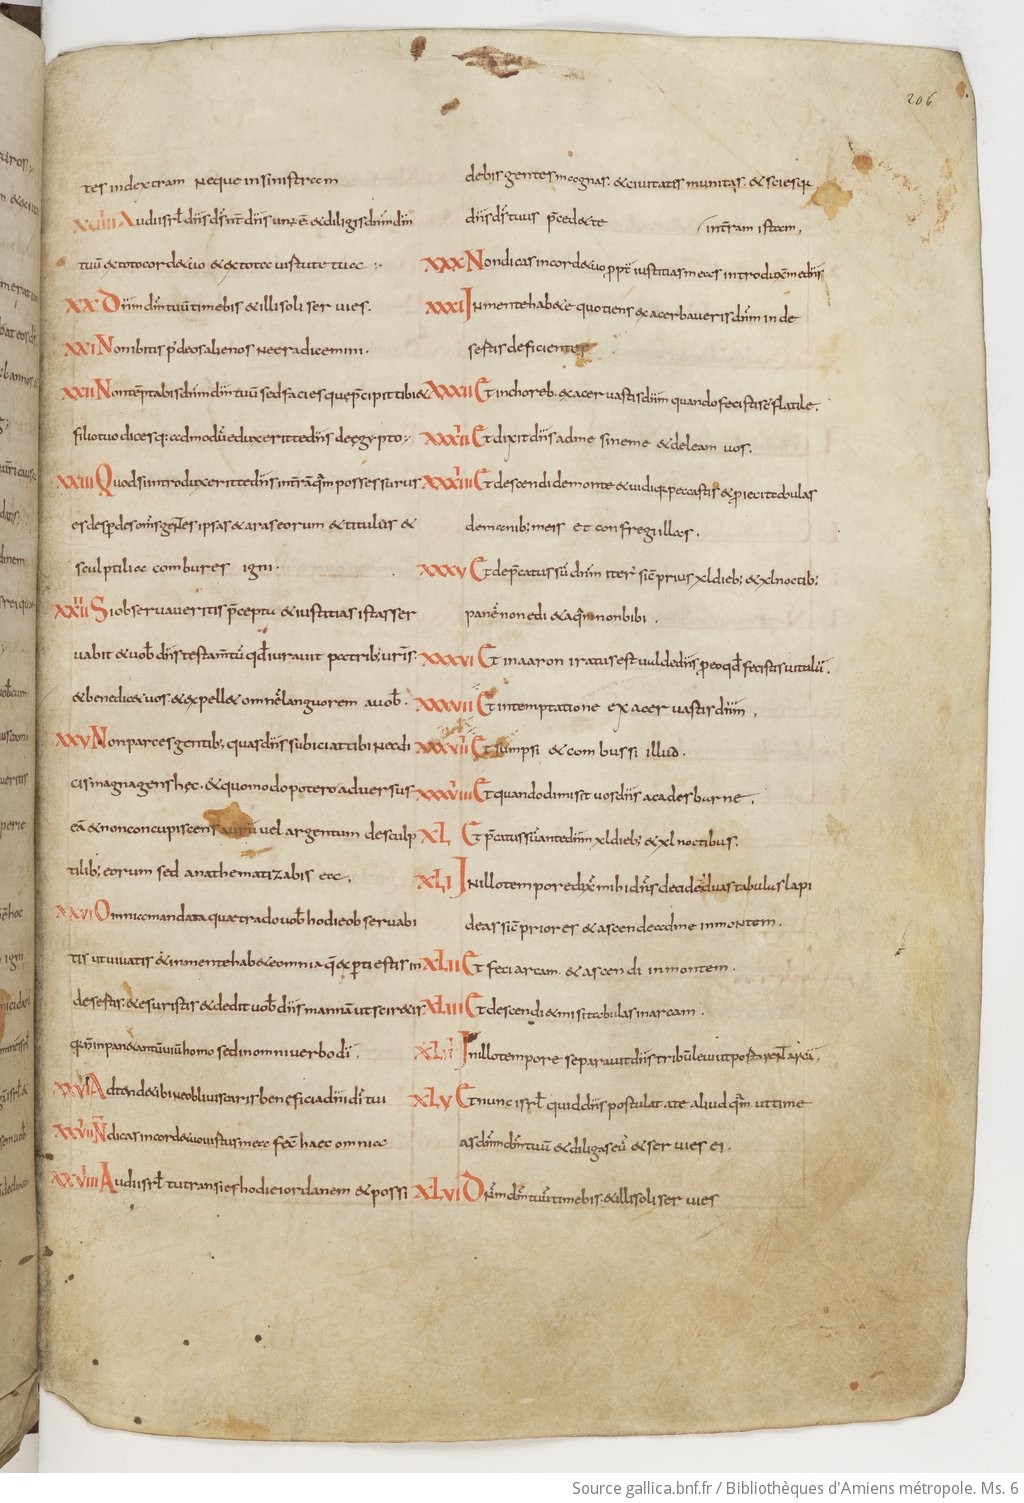 206
tes in dexteram neque in sinistram
xviiii Audi isrł dns ds nr dns unus ē & diliges dnm dm
tuū ex toto corde tuo & ex tota virtute tua :
xx Dnm dm tuū timebis & illi soli servies.
xxi Non ibitis p deos alienos ne eradicemini.
xxii Non tēptabis dnm dm tuū sed facies que p̄cipit tibi &
filio tuo dices q: admodū eduxerit te dns de ęgypto:
xxiii Quod si introduxerit te dns in trā quā possessurus
es desperdes om̄s gentes ipsas & aras eorum & titulos &
sculptilia combures igni.
xxiiii Si observaveritis p̄cepta & iustitias istas ser
vabit & vob dns testamtū qđ iuravit patrib; vris.
& benedic& vos & expell& omnē languorem a vob.
xxv Non parces gentib; quas dns subiciat tibi ne di
cis magna gens hęc. & quomodo potero adversus
eā & non concupiscens aurū vel argentum desculp
tilib; eorum sed anathematizabis ea.
xxvi Omnia mandata quae trado vob hodie observabi
tis ut vivatis & in mente habete omnia quę experti estis in
desertis & esuristis & dedit vob dns manna ut scir&is
qm̄ n in pane tantū vivit homo sed in omni verbo dī.
xxvii Adtende tibi ne obliviscaris beneficia dni di tui
xxviii N dicas in corde tuo virtus mea fec̄ haec omnia
xxviiii Audi isrł tu transies hodie iordanem & possi
debis gentes magnas. & civitatis munitas. & scies q̄
dns ds tuus p̄cedet te
in terram istam,
xxx Non dicas in corde tuo ppt iustitias meas introduxit me dns
xxxi In mente habe quotiens exacerbaveris dnm in de
sertis deficientes
xxxii Et in choreb. exacervastis dnm quando fecistis cōflatile.
xxxiii Et dixit dns ad me sine me & deleam vos.
xxxiiii Et descendi de monte & vidi q; peccastis & pieci tabulas
de manib; meis et confregi illas.
xxxv Et dep̄catus sū dnm iterū sic̄ prius xl dieb; & xl noctib;
panē non edi & aquā non bibi.
xxxvi Et in aaron iratus est vald& dns p eo qđ fecistis vitulū.
xxxvii Et in temptatione exacervastis dnm.
xxxviii Et sumpsi & combussi illud.
xxxviiii Et quando dimisit vos dns a cades burne.
xl Et p̄catus sū ante dnm xl dieb; & xl noctibus.
xli In illo tempore dix mihi dns decide duas tabulas lapi
deas sic̄ priores & ascende ad me in montem.
xlii Et feci arcam. & ascendi in montem.
xliii Et descendi & misi tabulas in arcam.
xliiii In illo tempore separavit dns tribū levi ut portaret arcā.
xlv Et nunc isrł quid dns postulat a te aliud quā ut time
as dnm dm tuū & diligas eū & servies ei.
xlvi Dnm dm tuū timebis. & illi soli servies
Source gallica.bnf.fr / Bibliothèques d'Amiens métropole. Ms. 6